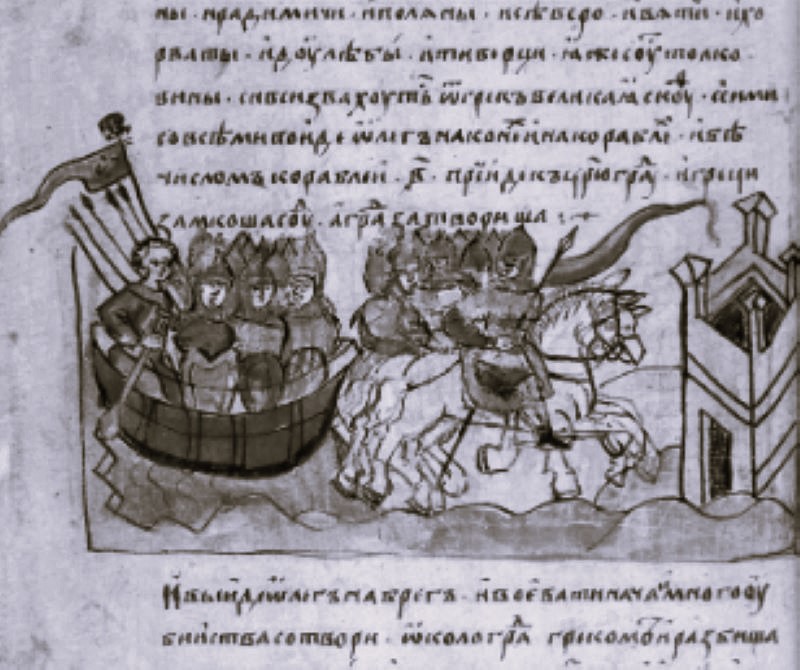 ны · ирадимичи · иполѧны · исѣверо · ивѧтичи · ихо
рваты · идоулѣбы · итиверци · ꙗжесоутьтолко
вины · сивсизвахоутьс ѿгрекъвеликаꙗскоуѳ · ссими
совсѣмипоиде ѡлегънаконѣхинакораблѣ · ибѣ
числомъкораблеи · в҃ · прїидекъцр҃югра · игреци
замкошасоу · аградзатвориша
ивыидеѡлегънабрегъ · ивоеватинача многооу
биистваствори · ѡкологра грекомъ иразбиша